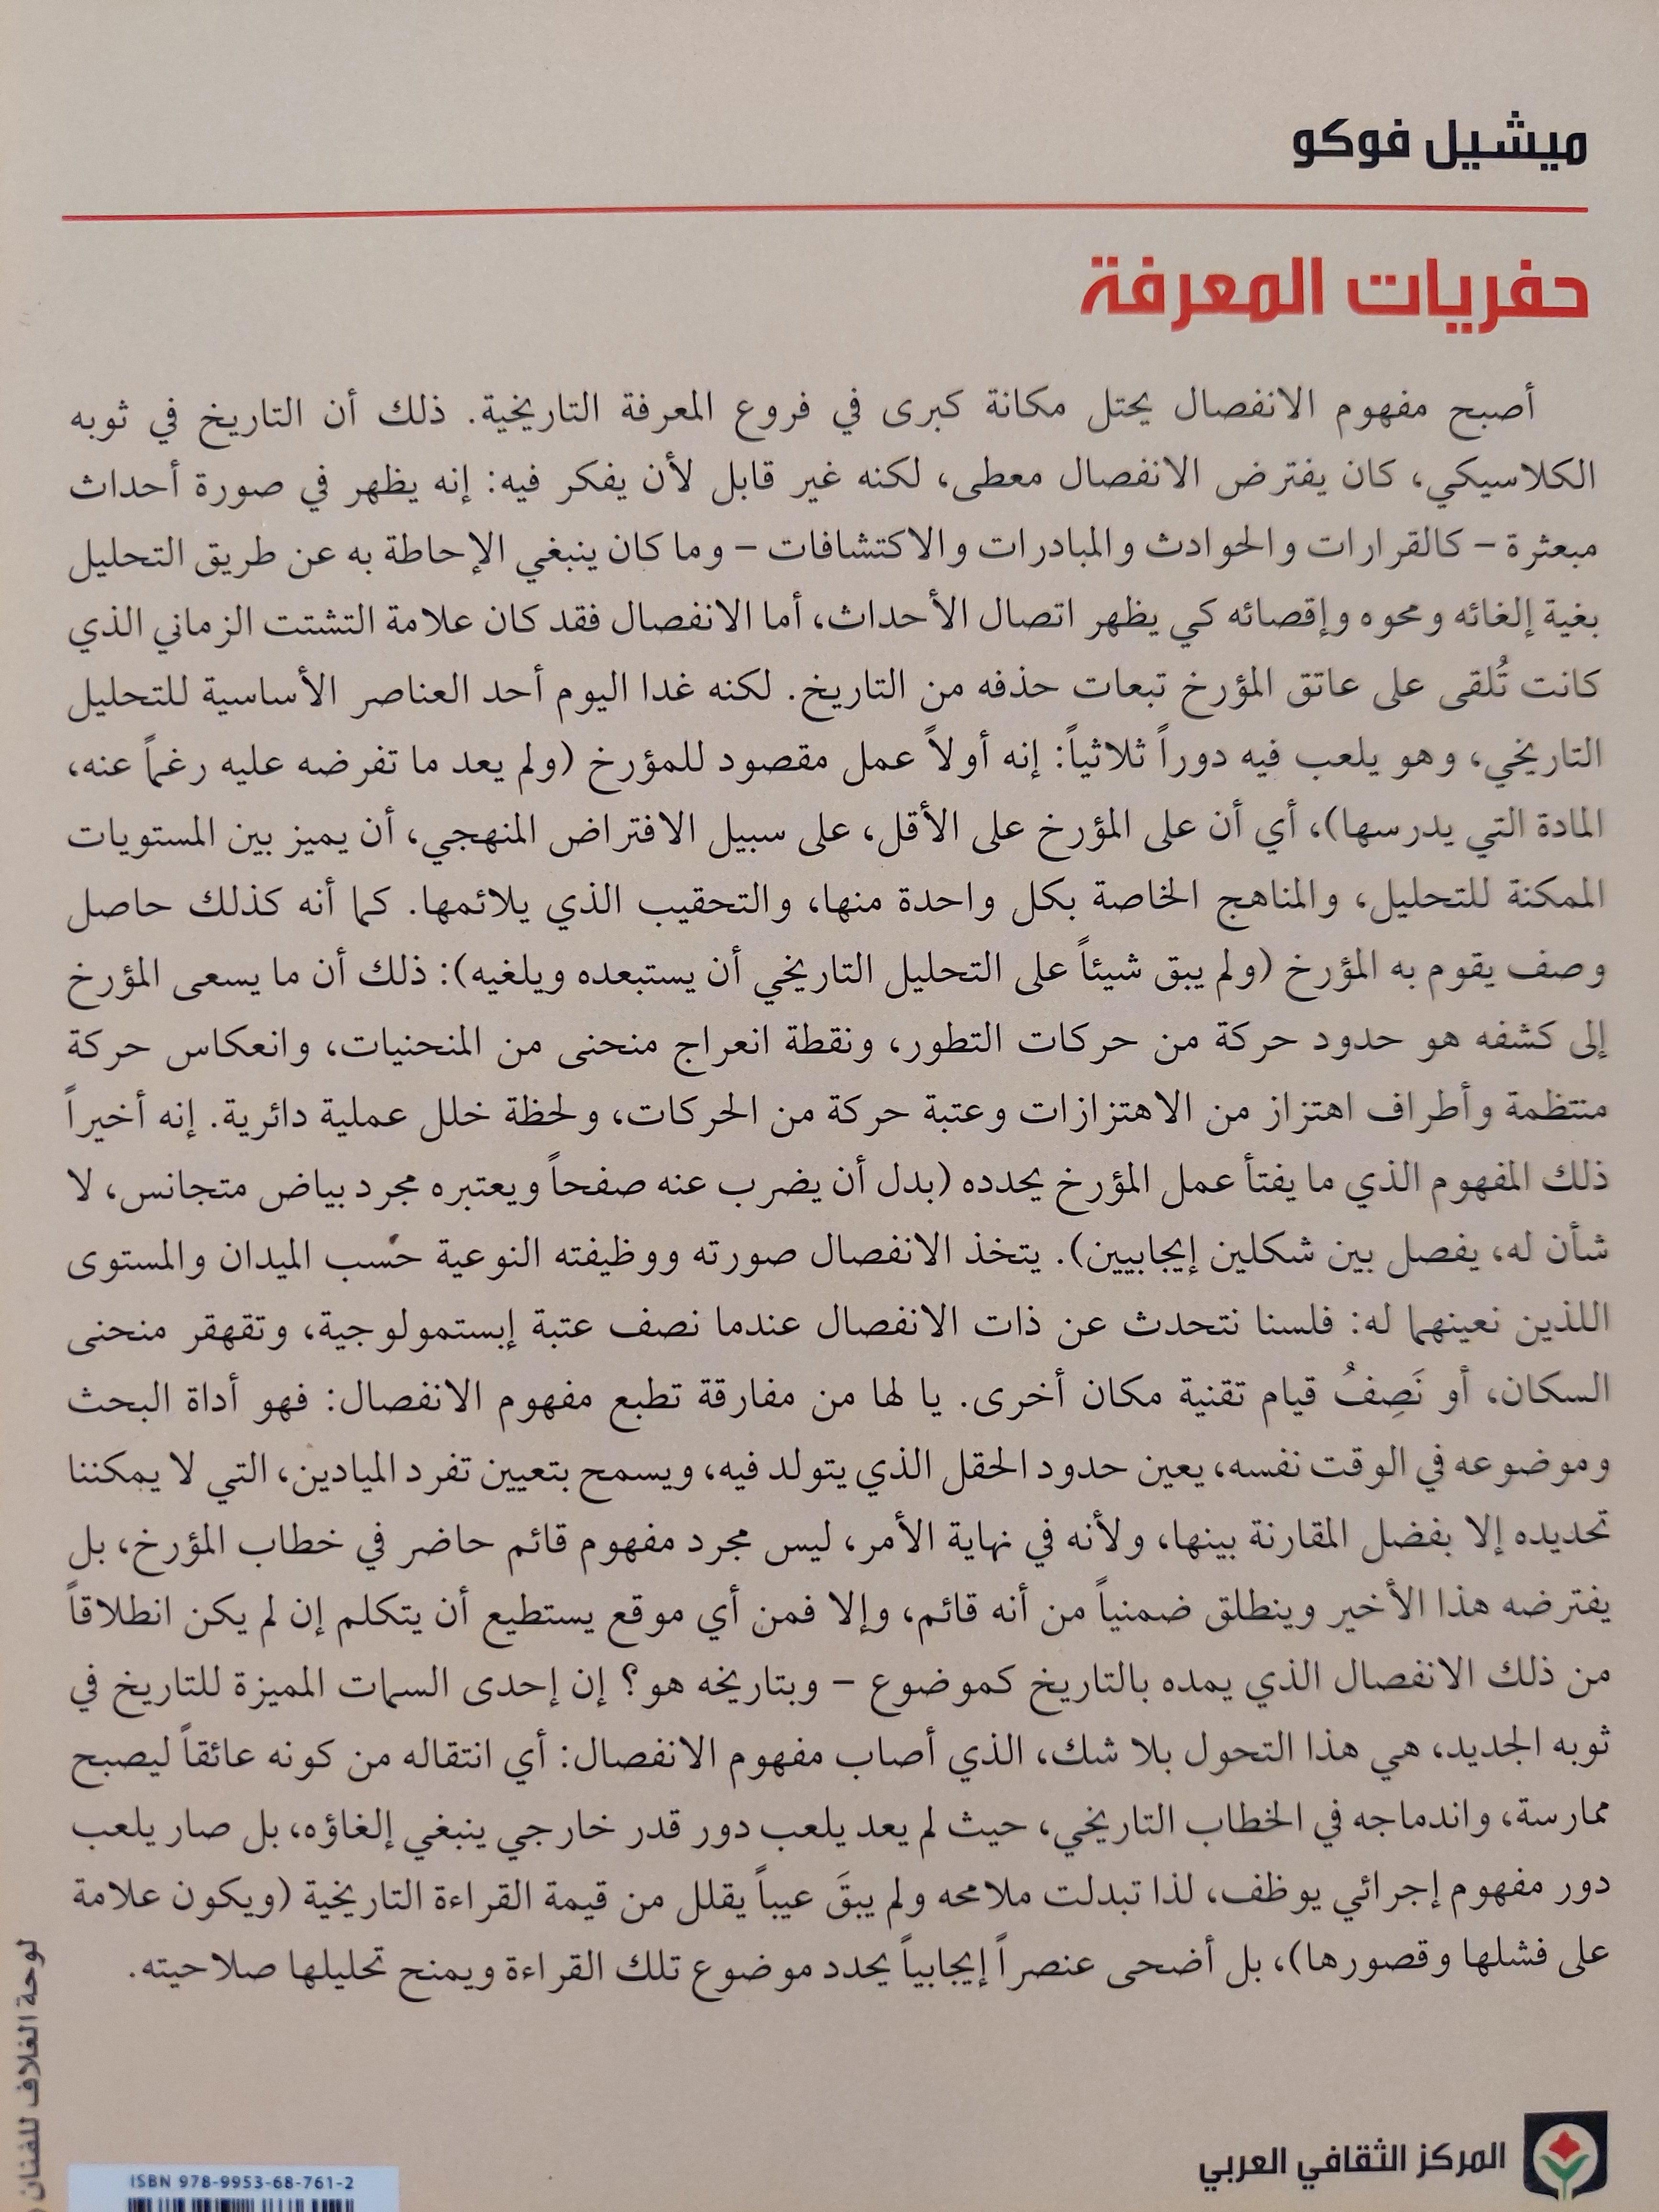 ميشيل فوكو
حفريات المعرفة
أصبح مفهوم الانفصال يحتل مكانة كبرى في فروع المعرفة التاريخية. ذلك أن التاريخ في ثوبه
الكلاسيكي، كان يفترض الانفصال معطى، لكنه غير قابل لأن يفكر فيه: إنه يظهر في صورة أحداث
مبعثرة – كالقرارات والحوادث والمبادرات والاكتشافات – وما كان ينبغي الإحاطة به عن طريق التحليل
بغية إلغائه ومحوه وإقصائه كي يظهر اتصال الأحداث، أما الانفصال فقد كان علامة التشتت الزماني الذي
كانت تُلقى على عاتق المؤرخ تبعات حذفه من التاريخ. لكنه غدا اليوم أحد العناصر الأساسية للتحليل
التاريخي، وهو يلعب فيه دوراً ثلاثياً: إنه أولاً عمل مقصود للمؤرخ (ولم يعد ما تفرضه عليه رغماً عنه،
المادة التي يدرسها)، أي أن على المؤرخ على الأقل، على سبيل الافتراض المنهجي، أن يميز بين المستويات
الممكنة للتحليل، والمناهج الخاصة بكل واحدة منها، والتحقيب الذي يلائمها. كما أنه كذلك حاصل
وصف يقوم به المؤرخ (ولم يبق شيئاً على التحليل التاريخي أن يستبعده ويلغيه): ذلك أن ما يسعى المؤرخ
إلى كشفه هو حدود حركة من حركات التطور، ونقطة انعراج منحنى من المنحنيات، وانعكاس حركة
منتظمة وأطراف اهتزاز من الاهتزازات وعتبة حركة من الحركات، ولحظة خلل عملية دائرية. إنه أخيراً
ذلك المفهوم الذي ما يفتأ عمل المؤرخ يحدده (بدل أن يضرب عنه صفحاً ويعتبره مجرد بياض متجانس، لا
شأن له، يفصل بين شكلين إيجابيين). يتخذ الانفصال صورته ووظيفته النوعية حسب الميدان والمستوى
اللذين نعينهما له: فلسنا نتحدث عن ذات الانفصال عندما نصف عتبة إبستمولوجية، وتقهقر منحنى
السكان، أو نَصِفُ قيام تقنية مكان أخرى. يا لها من مفارقة تطبع مفهوم الانفصال: فهو أداة البحث
وموضوعه في الوقت نفسه، يعين حدود الحقل الذي يتولد فيه، ويسمح بتعيين تفرد الميادين، التي لا يمكننا
تحديده إلا بفضل المقارنة بينها، ولأنه في نهاية الأمر، ليس مجرد مفهوم قائم حاضر في خطاب المؤرخ، بل
يفترضه هذا الأخير وينطلق ضمنياً من أنه قائم، وإلا فمن أي موقع يستطيع أن يتكلم إن لم يكن انطلاقاً
من ذلك الانفصال الذي يمده بالتاريخ كموضوع – وبتاريخه هو؟ إن إحدى السمات المميزة للتاريخ في
ثوبه الجديد، هي هذا التحول بلا شك، الذي أصاب مفهوم الانفصال: أي انتقاله من كونه عائقاً ليصبح
ممارسة، واندماجه في الخطاب التاريخي، حيث لم يعد يلعب دور قدر خارجي ينبغي إلغاؤه، بل صار يلعب
دور مفهوم إجرائي يوظف، لذا تبدلت ملامحه ولم يبقَ عيباً يقلل من قيمة القراءة التاريخية (ويكون علامة
على فشلها وقصورها)، بل أضحى عنصراً إيجابياً يحدد موضوع تلك القراءة ويمنح تحليلها صلاحيته.
لوحة الغلاف للفنان
المركز الثقافي العربي
ISBN 978-9953-68-761-2